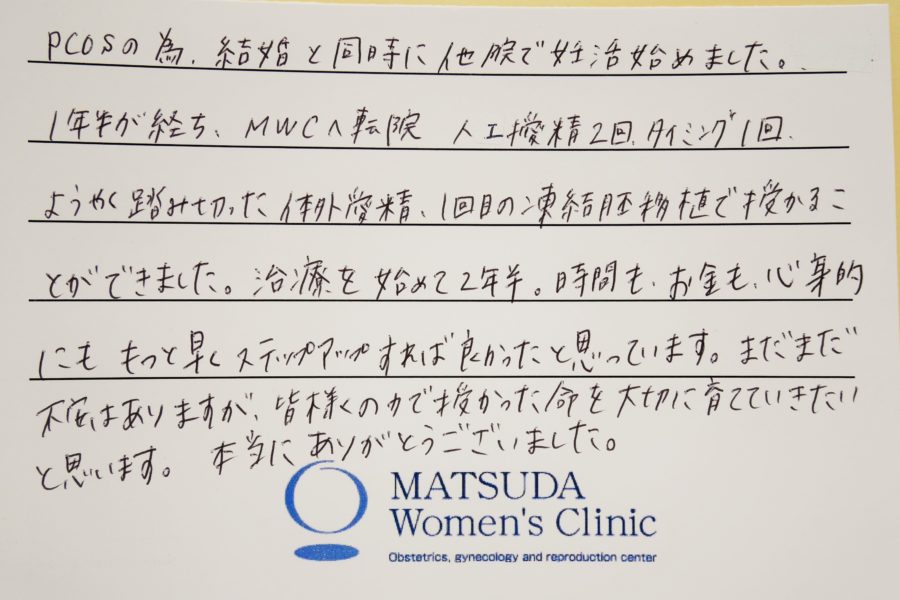 PCOSの為、結婚と同時に他院で妊活始めました。
1年半が経ち、MWCへ転院 人工授精2回、タイミング1回、
ようやく踏み切った体外受精、1回目の凍結胚移植で授かるこ
とができました。治療を始めて2年半。時間も、お金も、心身的
にも もっと早くステップアップすれば良かったと思っています。まだまだ
不安はありますが、皆様の力で授かった命を大切に育てていきたい
と思います。 本当にありがとうございました。
MATSUDA
Women's Clinic
Obstetrics, gynecology and reproduction center